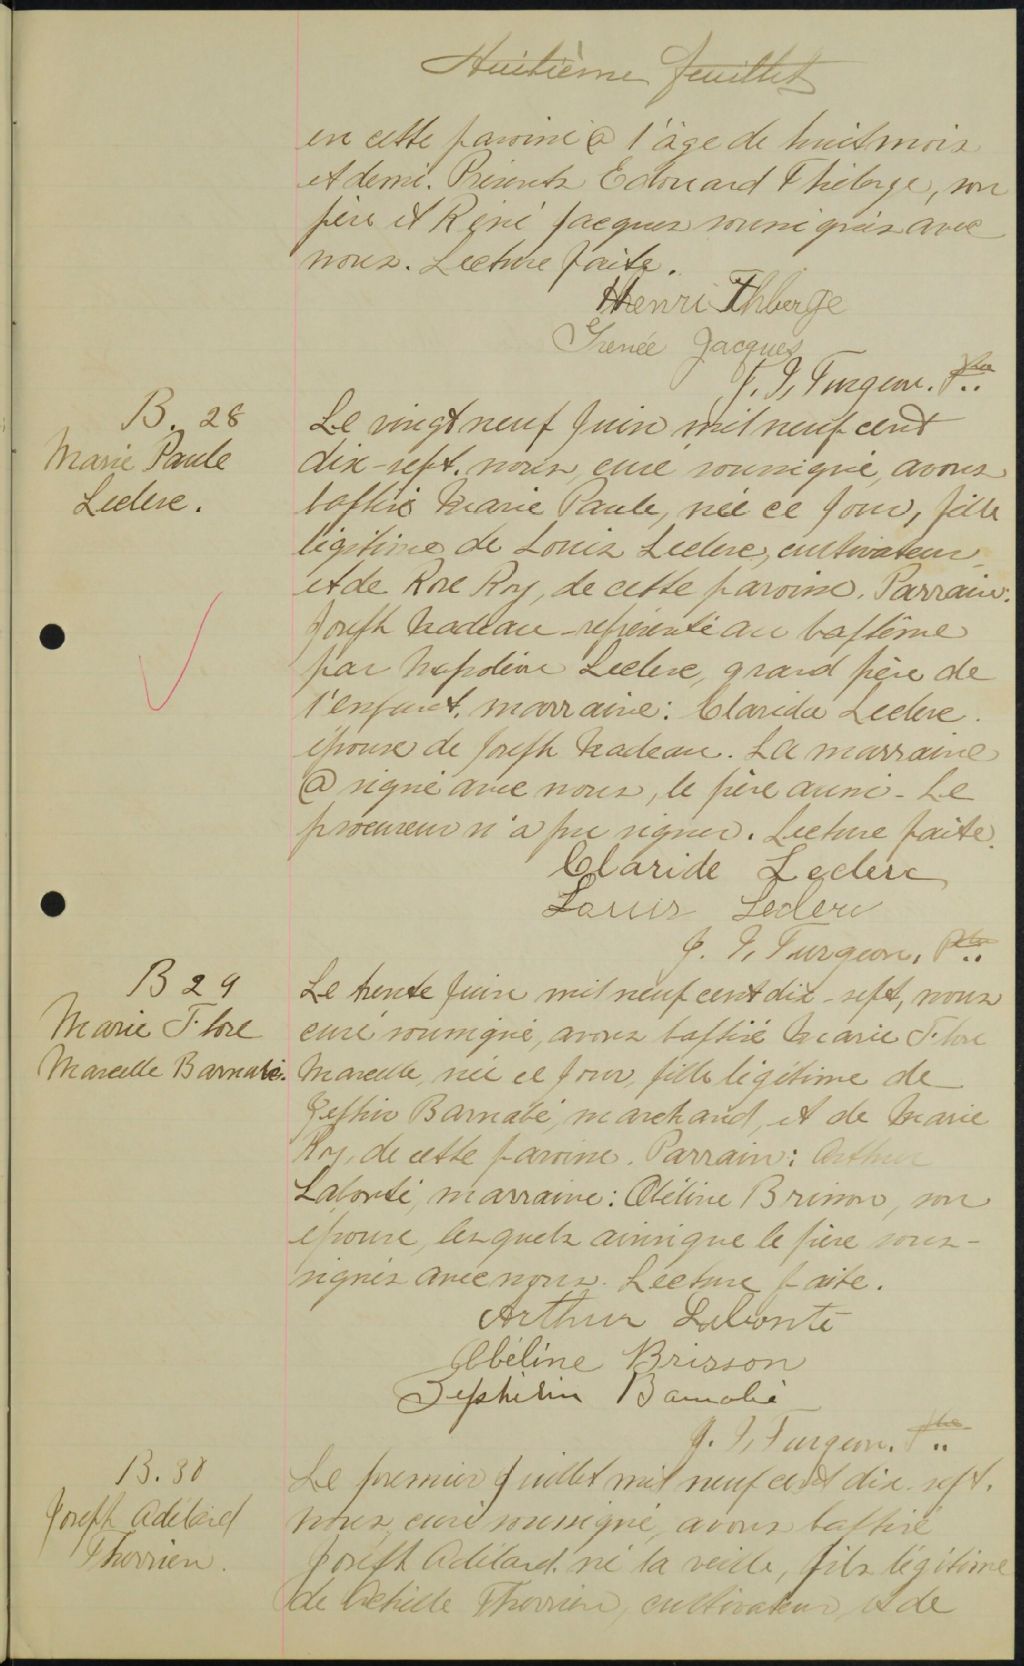 Huitième feuillet
en cette paroisse @ l'âge de huit mois
et demi. Présents Edouard Thiberge, son
père et Réné Jacques soussignés avec
nous. Lecture faite.
Henri Thberge
Grenée Jacques
J. I, Turgeon. Ptre
B. 28
Marie Paule
Leclerc.
Le vingt neuf Juin mil neuf cent
dix-sept, nous, curé soussigné, avons
baptisé Marie Paule, née ce jour, fille
légitime de Louis Leclerc, cultivateur
et de Rose Roy, de cette paroisse. Parrain:
Joseph Nadeau - représenté au baptême
par Napoléon Leclerc, grand père de
l'enfant, marraine: Claridée Leclerc
épouse de Joseph Nadeau. La marraine
@ signé avec nous, le père aussi - Le
procureur n'a pu signer. Lecture faite.
Claride Leclerc
Louis Leclerc
J. I, Turgeon, Ptre
B 29
Marie Flore
Marcelle Barnabé.
Le trente Juin mil neuf cent dix-sept, nous
curé soussigné, avons baptisé Marie Flore
Marcelle, née ce jour, fille légitime de
Zéphir Barnabé, marchand, et de Marie
Roy, de cette paroisse. Parrain: Arthur
Labonté, marraine: Obéline Brisson, son
épouse, lesquels ainsi que le père sous-
signés avec nous. Lecture faite.
Arthur Labonté
Obéline Brisson
Zephirin Barnabé
J. I, Turgeon. Ptre
B. 30
Joseph Adélard
Therrien.
Le premier Juillet mil neuf cent dix-sept.
nous, curé soussigné, avons baptisé
Joseph Adélard, né la veille, fils légitime
de Achille Therrien, cultivateur, et de